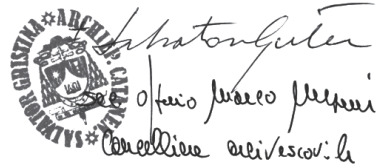 SALVATOR GRISTINA ✲ ARCHIEP. CATANEN ✲
+ Salvatore Gristina
Sac. Ottavio Marco Musumeci
Cancelliere arcivescovile